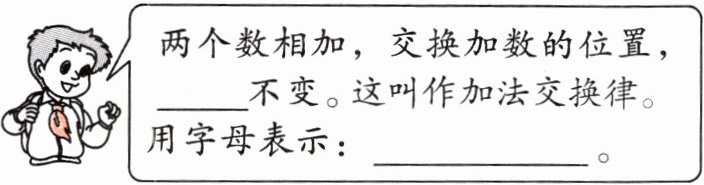 两个数相加，交换加数的位置，
______不变。这叫作加法交换律。
用字母表示：______________。